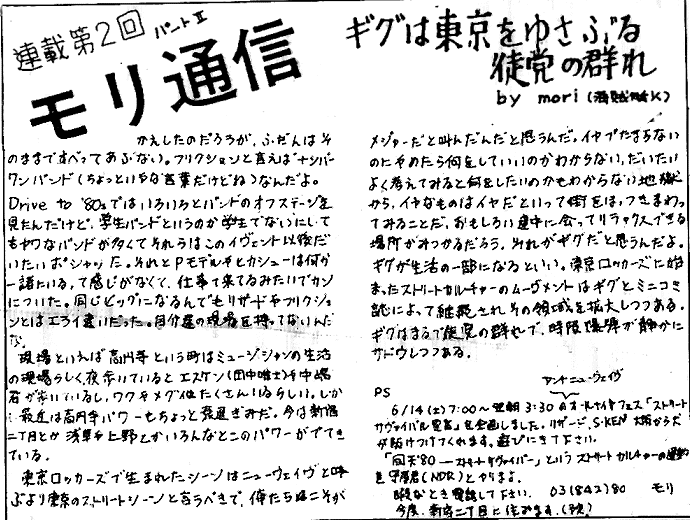 連載第2回 パートⅡ
モリ通信
ギグは東京をゆさぶる
徒党の群れ
by mori
かえしたのだろうが、ふだんはそ
のままですべってあぶない。フリクションと言えばナンバー
ワンバンド(ちょっといやな言葉だけどね)なんだよ。
Drive to '80sではいろいろとバンドのオフステージを
見たんだけど、学生バンドというのか学生でないにして
もヤワなバンドが多くてそれらはこのイヴェント以後だ
いたいポシャッた。それとPモデルやヒカシューは何か
一緒にいるって感じがなくて、仕事で来てるみたいでカン
についた。同じビッグになるんでもリザードやフリクショ
ンとはエライ違いだった。自分達の現場を持ってないんだ
な。
現場といえば高円寺という町はミュージシャンの生活
の現場らしく夜歩いているとエスケン(田中唯士)や中嶋
君が歩いているし、ワクやメグ他たくさんいるらしい。しか
し最近は高円寺パワーもちょっと衰退ぎみだ。今は新宿
二丁目とか浅草や上野とかいろんなとこのパワーがでてき
ている。
東京ロッカーズで生まれたシーンはニューウェイヴと呼
ぶより東京のストリートシーンと言うべきで、俺たちはこそが
メジャーだと叫んだんだと思うんだ。イヤでたまらない
のにやめたら何をしていいのかわからない、だいたい
よく考えてみると何をしたいのかもわからない地獄
から、イヤなものはイヤだといって街をほっつきまわっ
てみることだ。おもしろい連中に会ってリラックスできる
場所がみつかるだろう。それがギグだと思うんだよ。
ギグが生活の一部になるといい。東京ロッカーズに始
まったストリートカルチャーのムーヴメントはギグとミニコミ
誌によって維持されその領域を拡大しつつある。
ギグはまるで徒党の群れで、時限爆弾が静かに
サドウしつつある。
アンドニューウェイヴ
PS
6/14(土)7:00〜翌朝3:30 オールナイトフェス「ストリート
サヴァイバル宣言」を企画しました。リザード、S-KEN 大阪から
が駆けつけてくれます。遊びにきて下さい。
「回天'80 ―ストリートサヴァイバー」というストリートカルチャーの
を守屋君(NDR)とやりまよ。
暇なとき電話して下さい。 03(842)80 モリ
今度、新宿二丁目に住みます。